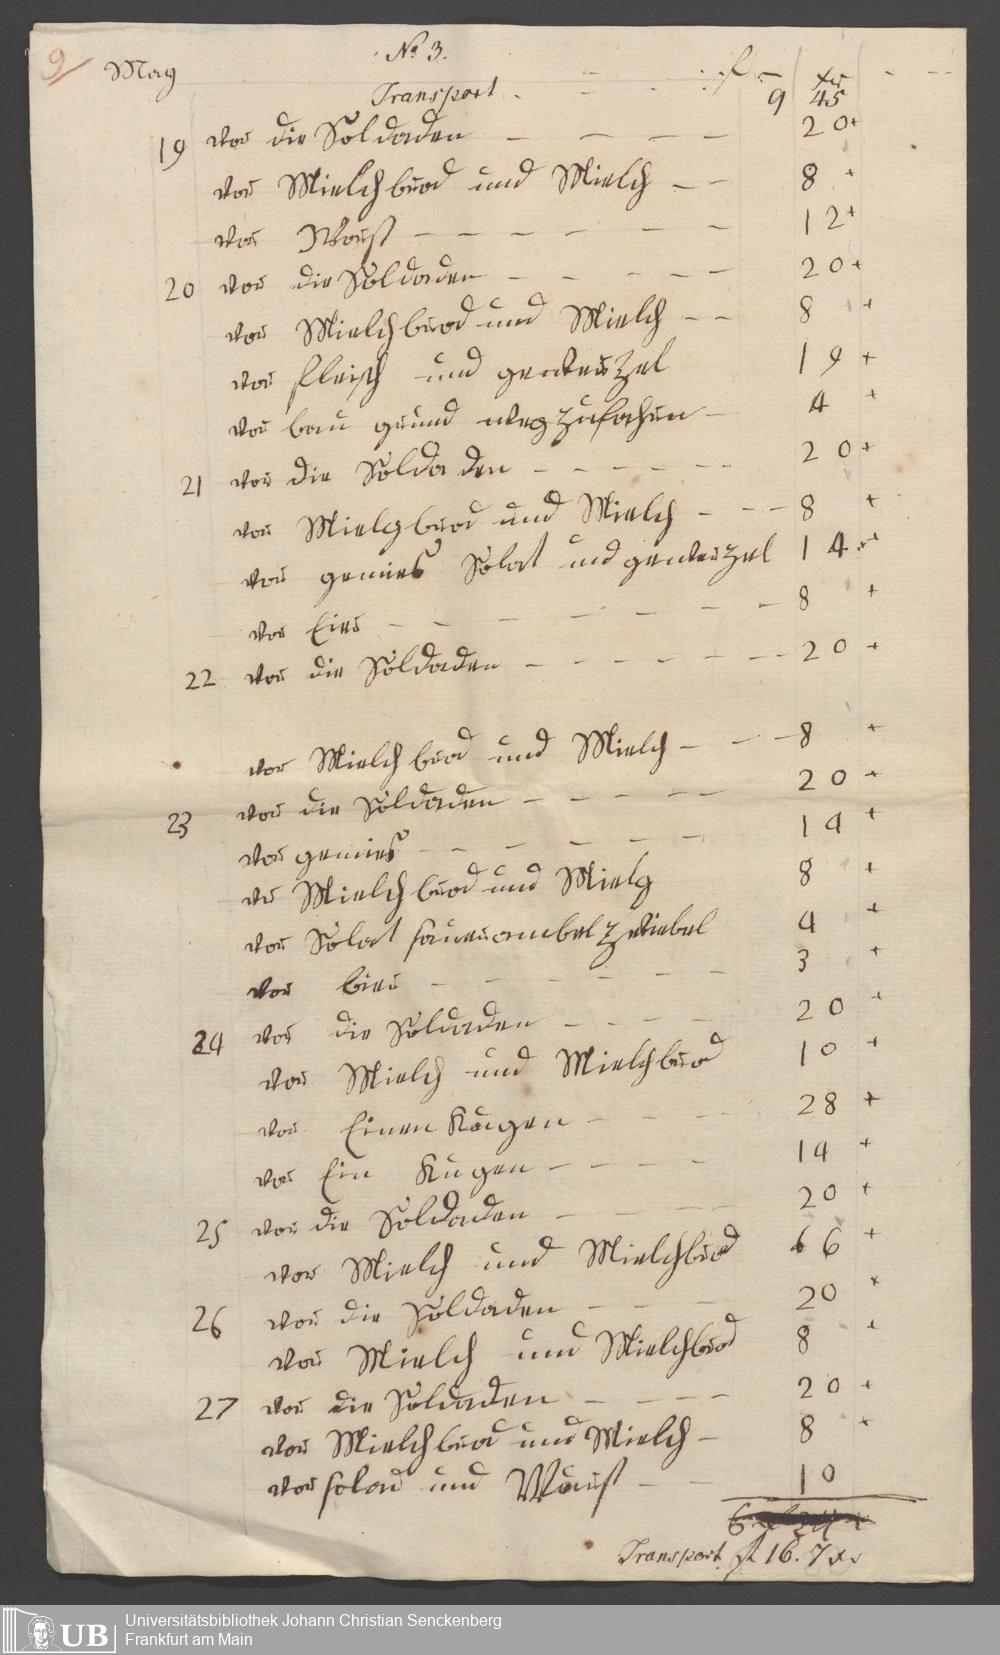 9/
May
No 3.
f xr
Transport 9 45
19 vor die Soldaden 20+
vor Mielchbrod und Mielch 8 +
vor Worst 12+
20 vor die Soldaden 20+
vor Mielchbrod und Mielch 8 +
vor fleisch und 19 +
vor bau grund weg zu fahren 4 +
21 vor die Soldaden 20+
vor Mielgbrod und Mielch 8 +
vor gemies Solat und 14 +
vor Eier 8 +
22 vor die Soldaden 20 +
vor Mielchbrod und Mielch 8 +
23 vor die Soldaden 20 +
vor gemies 14 +
vor Mielchbrod und Mielg 8 +
vor Solat saurambel zwiebel 4 +
vor bier 3 +
24 vor die Soldaden 20 +
vor Mielch und Mielchbrod 10 +
vor Einen Kugen 28 +
vor Ein Kugen 14 +
25 vor die Soldaden 20 +
vor Mielch und Mielchbrod 6 +
26 vor die Soldaden 20 +
vor Mielch und Mielchbrod 8 +
27 vor die Soldaden 20 +
vor Mielchbrod und Mielch 8 +
vor solad und Wourst 10
Transport f 16. 7 xr
UB
Universitätsbibliothek Johann Christian Senckenberg
Frankfurt am Main